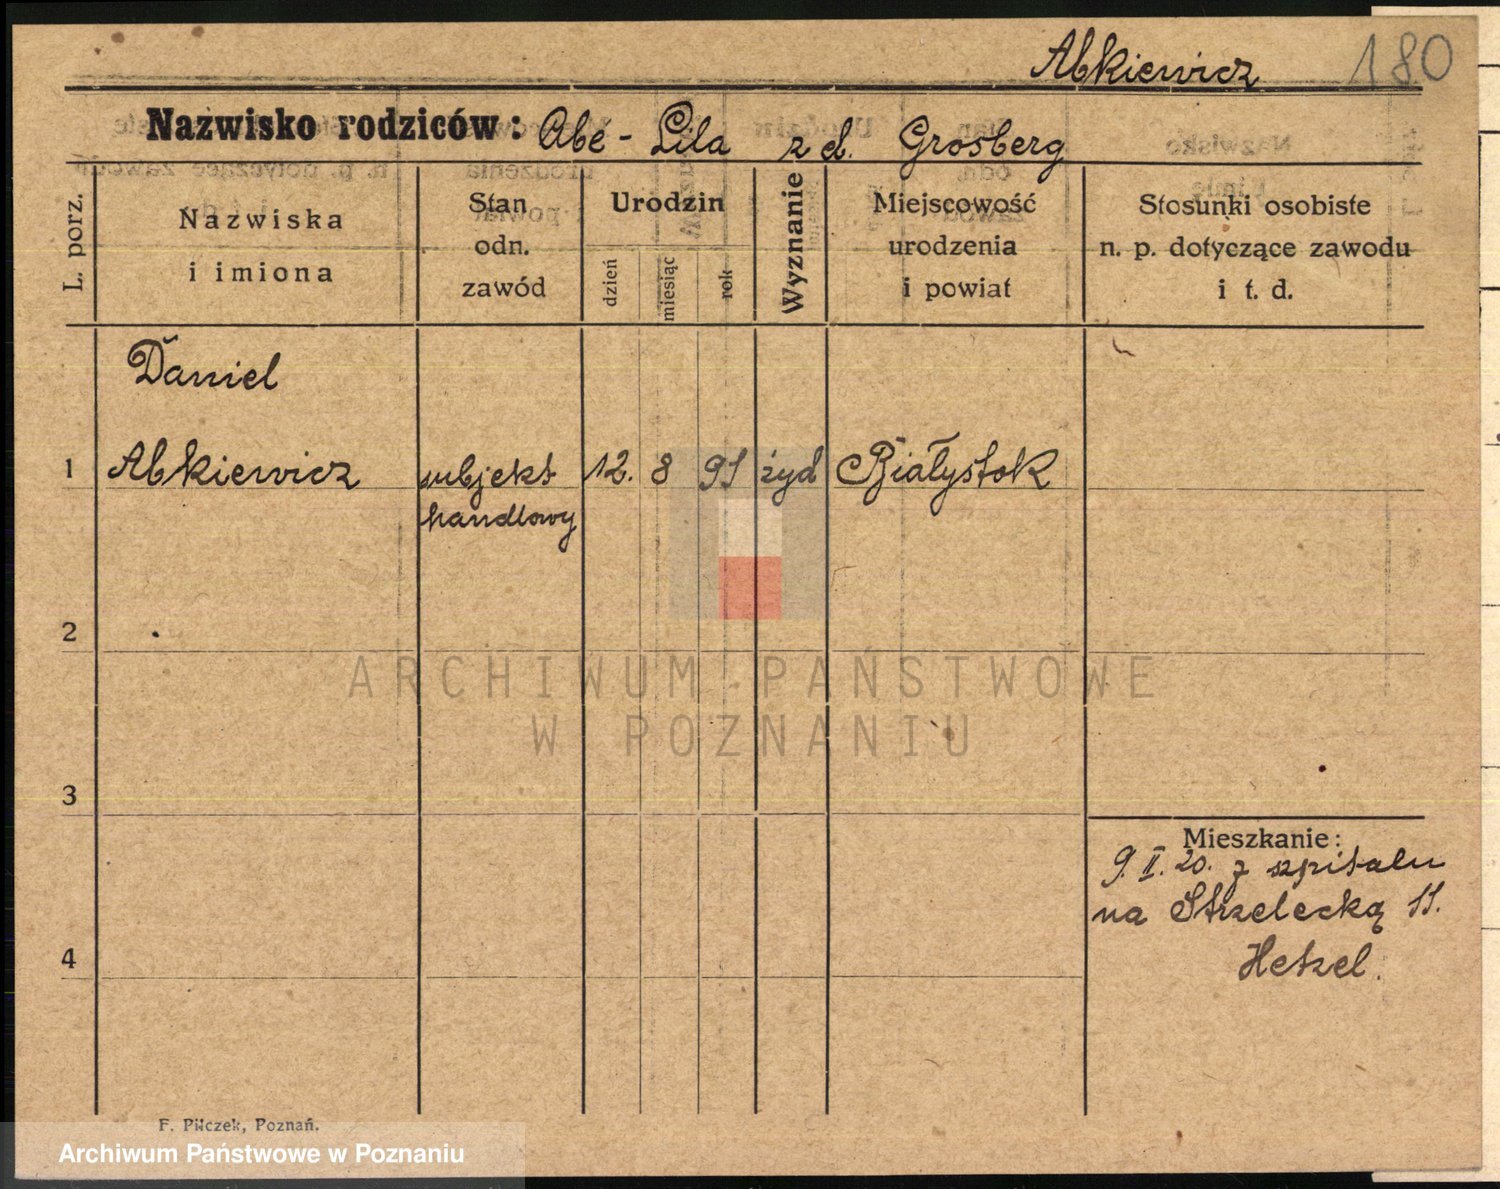 Abkiewicz 180
Nazwisko rodziców: Abe - Lila z d. Grosberg
L. porz.
Nazwiska
i imiona
Stan
odn.
zawód
Urodzin
dzień
miesiąc
rok
Wyznanie
Miejscowość
urodzenia
i powiat
Stosunki osobiste
n. p. dotyczące zawodu
i t. d.
Daniel
1 Abkiewicz subjekt 12. 8 91 żyd Białystok
handlowy
2
ARCHIWUM PAŃSTWOWE
W POZNANIU
3
Mieszkanie:
9. II. 20. z szpitalu
na Strzelecką 11.
4
Hetzel.
F. Pilczek, Poznań.
Archiwum Państwowe w Poznaniu